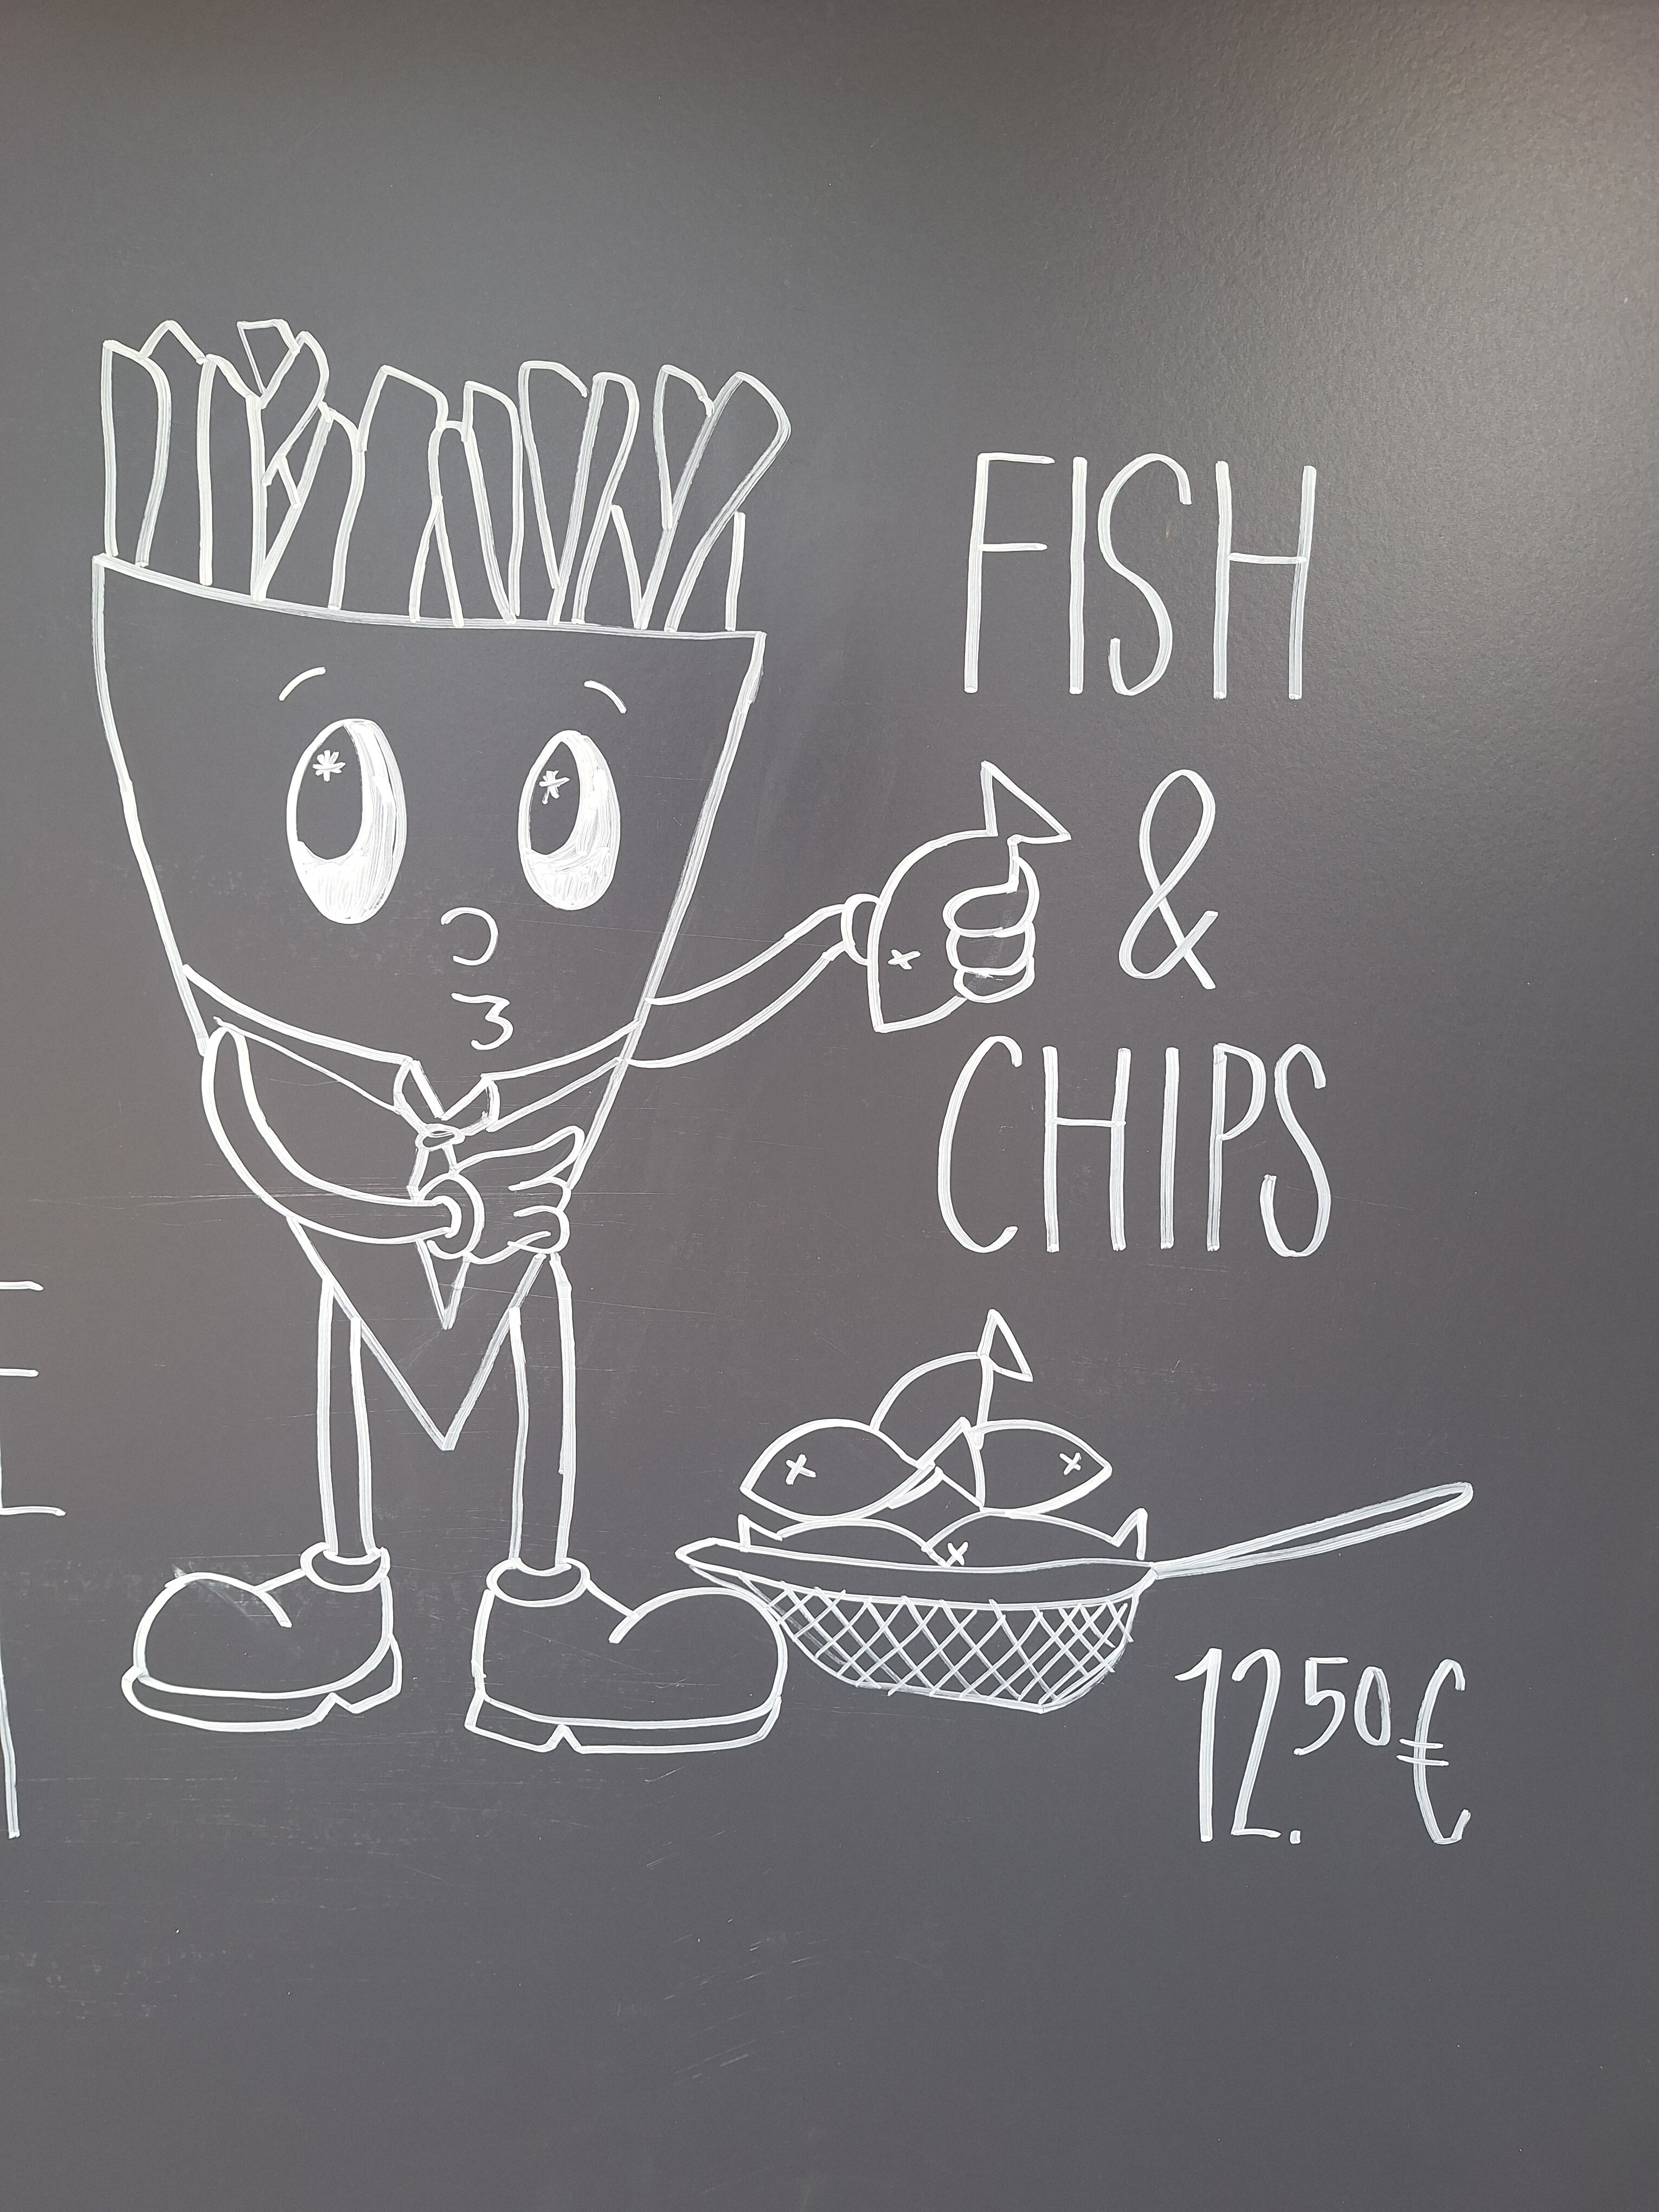 FISH
&
CHIPS
12.50€